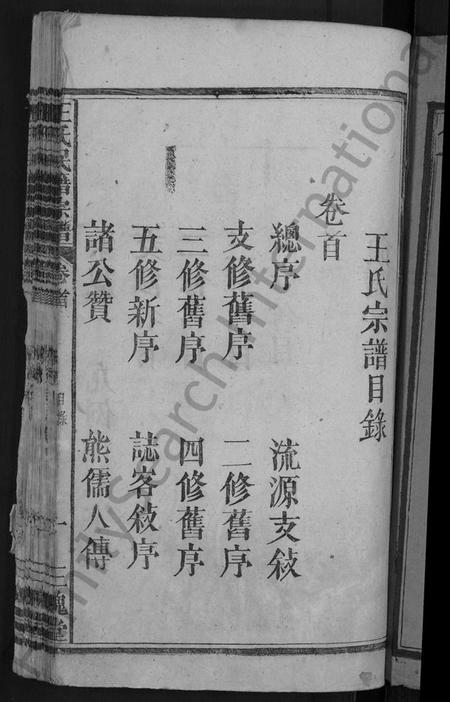 王氏宗譜目錄
卷首
總序 流源支敍
支修舊序 二修舊序
三修舊序 四修舊序
五修新序 誌客敍序
諸公贊 熊儒人傳
王氏民譜宗譜 卷首 目錄 一 三槐堂
FamilySearch International